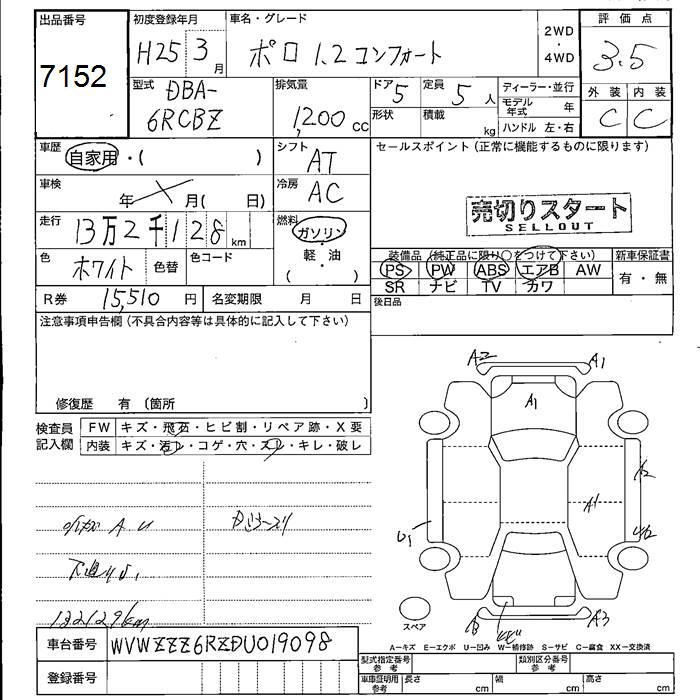 出品番号 初度登録年月 車名・グレード 評価点
7152 H25 3月 ポロ 1.2 コンフォート 2WD・4WD 3.5
型式 排気量 ドア 定員 ディーラー・並行 外装 内装
DBA-6RCBZ 1,200cc 5 5人 モデル年式 年 C C
形状 積載 kg ハンドル 左・右
車歴 シフト セールスポイント (正常に機能するものに限ります)
自家用・( ) AT
車検 冷房
年 月( 日) AC
売切りスタート
SELLOUT
走行 燃料
13万2千128km ガソリン・軽・油( )
装備品 (純正品に限り○をつけて下さい) 新車保証書
色 ホワイト 色替 色コード PS PW ABS エアB AW 有・無
SR ナビ TV カワ
R券 15,510円 名変期限 月 日 後日品
注意事項申告欄(不具合内容等は具体的に記入して下さい)
修復歴 有 (箇所 )
検査員記入欄 FW キズ・飛石・ヒビ割・リペア跡・X要
内装 キズ・汚レ・コゲ・穴・スレ・キレ・破レ
A2 A1
A1
A2
A1
U1
A3
スペア
132129km
A=キズ E=エクボ U=凹み W=補修跡 S=サビ C=腐食 XX=交換済
車台番号 WVWZZZ6RZDU019098
登録番号
型式指定番号参考 類別区分番号参考
車庫証明用参考 長さ cm 幅 cm 高さ cm